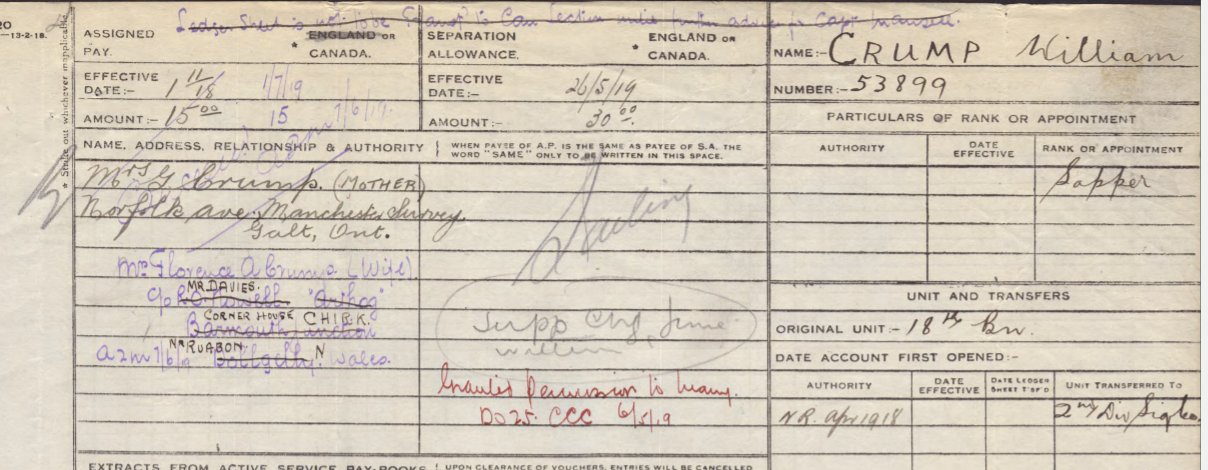 20
-13-2-18.
* Strike out whichever inapplicable
Ledger Sheet is not to be Transf to Can Section until further advice fr Capt
ASSIGNED PAY.
* ENGLAND OR CANADA.
SEPARATION ALLOWANCE.
* ENGLAND OR CANADA.
NAME:- CRUMP William
EFFECTIVE DATE:- 1 11/18 1/7/19
EFFECTIVE DATE:- 26/5/19
NUMBER:- 53899
AMOUNT:- 15 00 15 1/6/19.
AMOUNT:- 30 00
PARTICULARS OF RANK OR APPOINTMENT
NAME, ADDRESS, RELATIONSHIP & AUTHORITY
WHEN PAYEE OF A.P. IS THE SAME AS PAYEE OF S.A. THE
WORD "SAME" ONLY TO BE WRITTEN IN THIS SPACE.
AUTHORITY
DATE EFFECTIVE
RANK OR APPOINTMENT
Mrs G Crump. (MOTHER)
Sapper
Norfolk ave. Manchester Survey.
Galt, Ont.
Mrs Florence A Crump (Wife)
UNIT AND TRANSFERS
MR. DAVIES.
c/o R.O. Howell "Arthog"
CORNER HOUSE, CHIRK.
Barmouth Junction
Supp Chq June
ORIGINAL UNIT:- 18th Bn.
NR RUABON.
azm 7/6/19 Dollgelly. N Wales.
written
DATE ACCOUNT FIRST OPENED:-
Granted Permission to Marry.
AUTHORITY
DATE EFFECTIVE
DATE LEDGER SHEET T'OF'D
UNIT TRANSFERRED TO
DO 25. CCC 6/5/19
N.R. Apr 1918
2nd Div Sig Co.
EXTRACTS FROM ACTIVE SERVICE PAY-BOOKS
UPON CLEARANCE OF VOUCHERS, ENTRIES WILL BE CANCELLED